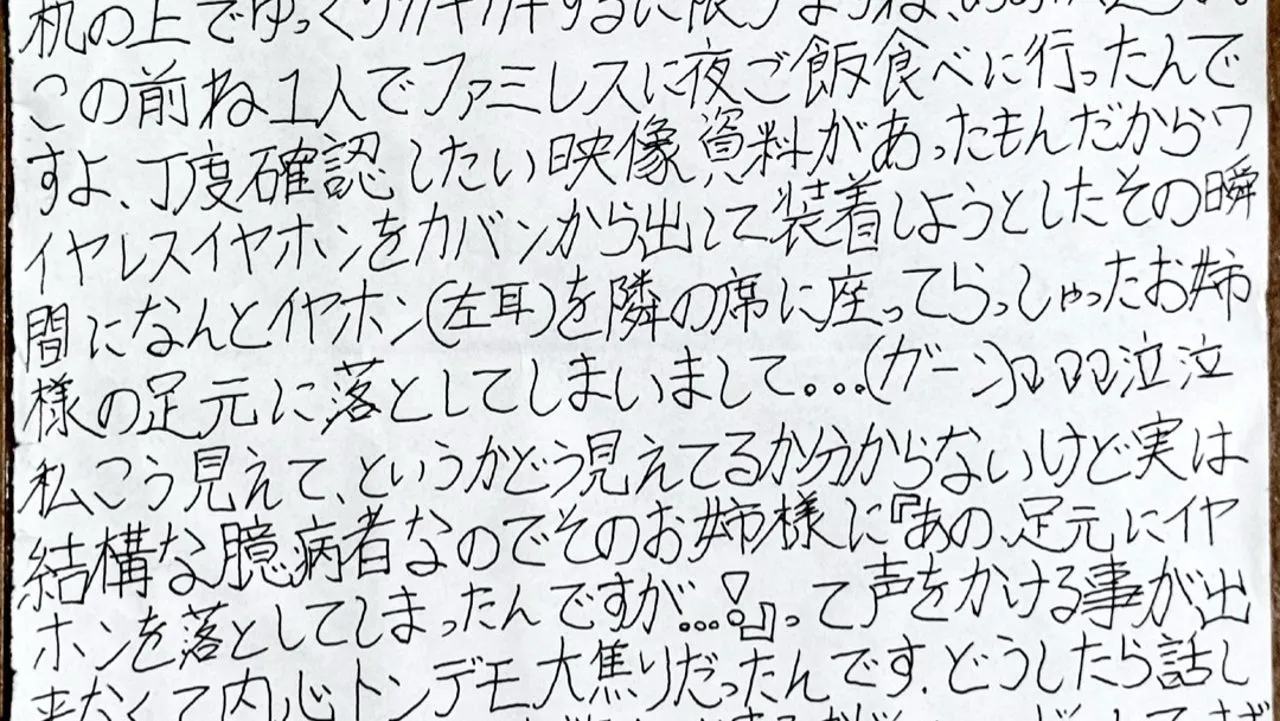 机の上でゆっくりカキカキするに限りますね、
この前ね1人でファミレスに夜ご飯食べに行ったんで
すよ、丁度確認したい映像資料があったもんだからワ
イヤレスイヤホンをカバンから出して装着しようとしたその瞬
間になんとイヤホン(左耳)を隣の席に座ってらっしゃったお姉
様の足元に落としてしまいまして...(ガーン)泣泣
私こう見えて、というかどう見えてるか分からないけど実は
結構な臆病者なのでそのお姉様に『あの、足元にイヤ
ホンを落としてしまったんですが...!』って声をかける事が出
来なくて内心トンデモ大焦りだったんです.どうしたら話し